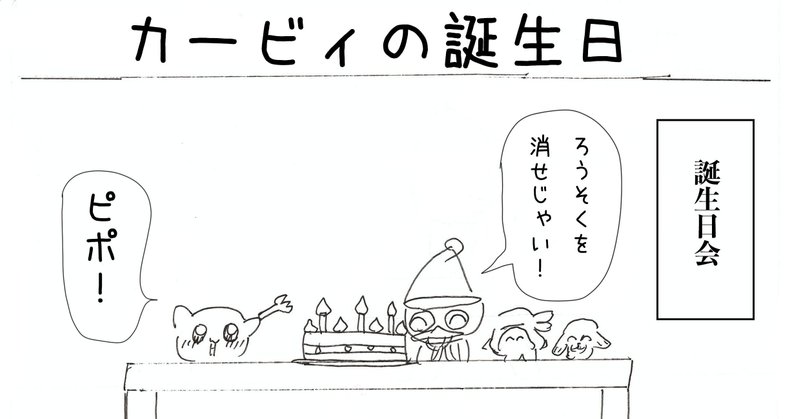 カービィの誕生日
誕生日会
ろうそくを
消せじゃい!
ピポ!